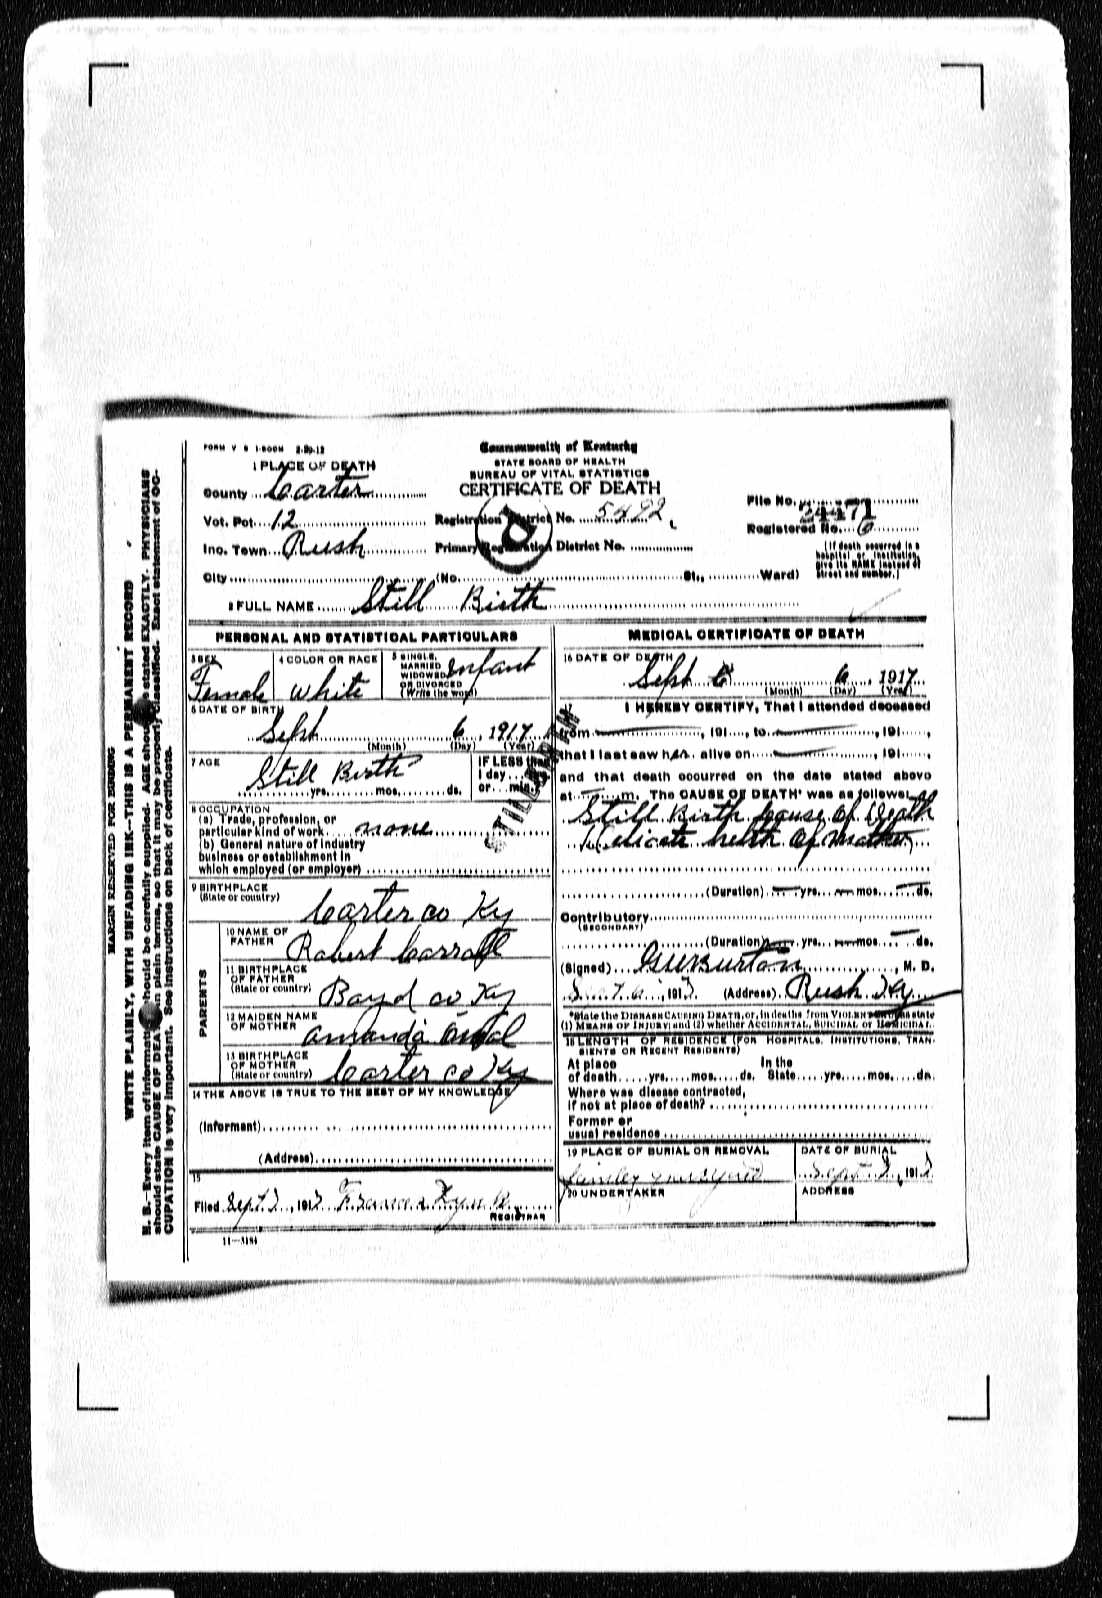 FORM V S 1-500M 2-29-12
Commonwealth of Kentucky
STATE BOARD OF HEALTH
BUREAU OF VITAL STATISTICS
CERTIFICATE OF DEATH
1 PLACE OF DEATH
County Carter
Vot. Pct. 12
Inc. Town Rush
City (No. St., Ward)
Registration District No. 5492
Primary Registration District No.
File No. 24471
Registered No. 6
(If death occurred in a
hospital or institution,
give its NAME instead of
street and number.)
2 FULL NAME Still Birth
PERSONAL AND STATISTICAL PARTICULARS
3 SEX
Female
4 COLOR OR RACE
White
5 SINGLE,
MARRIED
WIDOWED
OR DIVORCED
(Write the word)
Infant
6 DATE OF BIRTH
Sept 6, 1917
(Month) (Day) (Year)
7 AGE
Still Birth
yrs. mos. ds.
IF LESS than
1 day
or min.
STILLBORN
8 OCCUPATION
(a) Trade, profession, or
particular kind of work none
(b) General nature of industry
business or establishment in
which employed (or employer)
9 BIRTHPLACE
(State or country)
Carter co Ky
PARENTS
10 NAME OF
FATHER
Robert Carroll
11 BIRTHPLACE
OF FATHER
(State or country)
Boyd co Ky
12 MAIDEN NAME
OF MOTHER
Amanda
13 BIRTHPLACE
OF MOTHER
(State or country)
Carter co Ky
14 THE ABOVE IS TRUE TO THE BEST OF MY KNOWLEDGE
(Informant)
(Address)
15
Filed Sept 7, 1917
REGISTRAR
11—3184
MEDICAL CERTIFICATE OF DEATH
16 DATE OF DEATH
Sept 6 6, 1917
(Month) (Day) (Year)
17 I HEREBY CERTIFY, That I attended deceased
from , 191 , to , 191 ,
that I last saw her alive on , 191 ,
and that death occurred on the date stated above
at m. The CAUSE OF DEATH* was as follows:
Still Birth Cause of Death
Delicate helth of mother
(Duration) yrs. mos. ds.
Contributory
(SECONDARY)
(Duration) yrs. mos. ds.
(Signed) Burton, M. D.
Sept 6, 1917 (Address) Rush Ky
*State the DISEASE CAUSING DEATH, or, in deaths from VIOLENT CAUSES, state
(1) MEANS OF INJURY; and (2) whether ACCIDENTAL, SUICIDAL or HOMICIDAL.
18 LENGTH OF RESIDENCE (FOR HOSPITALS, INSTITUTIONS, TRAN-
SIENTS OR RECENT RESIDENTS)
At place In the
of death yrs. mos. ds. State yrs. mos. ds.
Where was disease contracted,
if not at place of death?
Former or
usual residence
19 PLACE OF BURIAL OR REMOVAL
graveyard
DATE OF BURIAL
Sept 7, 1917
20 UNDERTAKER
ADDRESS
MARGIN RESERVED FOR BINDING
WRITE PLAINLY, WITH UNFADING INK—THIS IS A PERMANENT RECORD
N. B.—Every item of information should be carefully supplied. AGE should be stated EXACTLY. PHYSICIANS
should state CAUSE OF DEATH in plain terms, so that it may be properly classified. Exact statement of OC-
CUPATION is very important. See instructions on back of certificate.